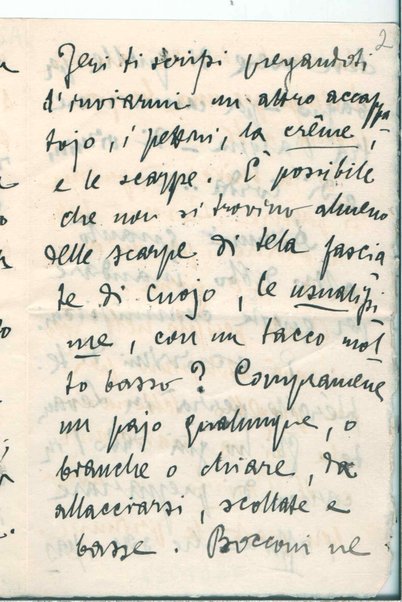 2
Jeri ti scrissi pregandoti
d'inviarmi un altro accappa
tojo, i pettini, la crême,
e le scarpe. È possibile
che non si trovino almeno
delle scarpe di tela fascia
te di cuojo, le usualissi
me, con un tacco mol
to basso? Compramene
un pajo qualunque, o
branche o chiare, da
allacciarsi, scollate e
basse. Bocconi ne